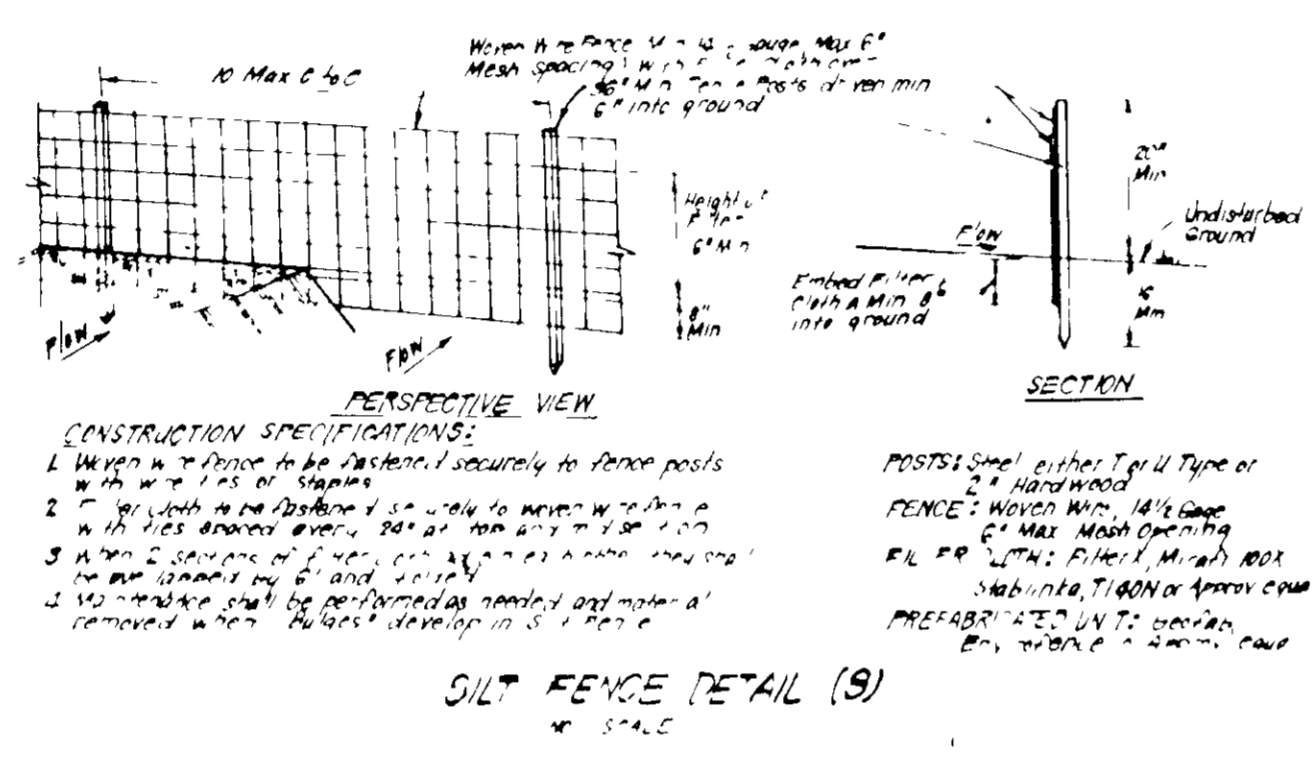 10 Max C to C
Woven Wire Fence Min gauge, Max 6"
Mesh Spacing) with
36" Min Fence Posts driven min
6" into ground
Height of
Filter
6" Min
8"
Min
Flow
Flow
PERSPECTIVE VIEW
Flow
Embed Filter
Cloth A Min 8"
into ground
20"
Min
Undisturbed
Ground
16
Min
SECTION
CONSTRUCTION SPECIFICATIONS:
1. Woven wire fence to be fastened securely to fence posts
with wire ties or staples
2 Filter cloth to be fastened securely to woven wire fence
with ties spaced every 24" at top and mid section
3 When 2 sections of filter cloth they shall
be overlapped by 6" and
4 Maintenance shall be performed as needed and material
removed when "Bulges" develop in Silt Fence
POSTS: Steel either T or U Type or
2" Hardwood
FENCE: Woven Wire, 14 1/2 Gage
6" Max Mesh Opening
FILTER CLOTH: Filter X, Mirafi 100X
Stabilinka, T140N or Approv equa
PREFABRICATED UNIT: Geofab,
SILT FENCE DETAIL (S)
NO SCALE